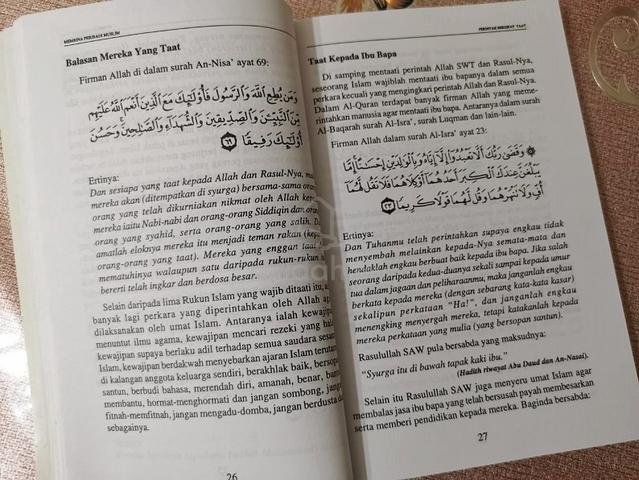 MEMBINA PERIBADI MUSLIM
Balasan Mereka Yang Taat
Firman Allah di dalam surah An-Nisa' ayat 69:
وَمَن يُطِعِ اللَّهَ وَالرَّسُولَ فَأُولَٰئِكَ مَعَ الَّذِينَ أَنْعَمَ اللَّهُ عَلَيْهِم
مِّنَ النَّبِيِّينَ وَالصِّدِّيقِينَ وَالشُّهَدَاءِ وَالصَّالِحِينَ ۚ وَحَسُنَ
أُولَٰئِكَ رَفِيقًا ٦٩
Ertinya:
Dan sesiapa yang taat kepada Allah dan Rasul-Nya, ma
mereka akan (ditempatkan di syurga) bersama-sama oran
orang yang telah dikurniakan nikmat oleh Allah kep
mereka iaitu Nabi-nabi dan orang-orang Siddiqin dan
orang yang syahid, serta orang-orang yang salih. D
amatlah eloknya mereka itu menjadi teman rakan (kep
orang-orang yang taat). Mereka yang enggan taat
mematuhinya walaupun satu daripada rukun-rukun
bererti telah ingkar dan berdosa besar.
Selain daripada lima Rukun Islam yang wajib ditaati itu, a
banyak lagi perkara yang diperintahkan oleh Allah
dilaksanakan oleh umat Islam. Antaranya ialah kewajip
menuntut ilmu agama, kewajipan mencari rezeki yang hal
kewajipan supaya berlaku adil terhadap semua saudara sesam
Islam, kewajipan berdakwah menyebarkan ajaran Islam terutam
di kalangan anggota keluarga sendiri, berakhlak baik, bersopan
santun, berbudi bahasa, merendah diri, amanah, benar, ban
membantu, hormat-menghormati dan jangan sombong, jang
fitnah-memfitnah, jangan mengadu-domba, jangan berdusta d
sebagainya.
26
PERINTAH BERSIFAT TAAT
Taat Kepada Ibu Bapa
Di samping mentaati perintah Allah SWT dan Rasul-Nya,
seseorang Islam wajiblah mentaati ibu bapanya dalam semua
perkara kecuali yang mengingkari perintah Allah dan Rasul-Nya.
Dalam Al-Quran terdapat banyak firman Allah yang meme-
rintahkan manusia agar mentaati ibu bapa. Antaranya dalam surah
Al-Baqarah surah Al-Isra', surah Luqman dan lain-lain.
Firman Allah dalam surah Al-Isra' ayat 23:
وَقَضَىٰ رَبُّكَ أَلَّا تَعْبُدُوا إِلَّا إِيَّاهُ وَبِالْوَالِدَيْنِ إِحْسَانًا ۚ إِمَّا
يَبْلُغَنَّ عِندَكَ الْكِبَرَ أَحَدُهُمَا أَوْ كِلَاهُمَا فَلَا تَقُل لَّهُمَا
أُفٍّ وَلَا تَنْهَرْهُمَا وَقُل لَّهُمَا قَوْلًا كَرِيمًا ٢٣
Ertinya:
Dan Tuhanmu telah perintahkan supaya engkau tidak
menyembah melainkan kepada-Nya semata-mata dan
hendaklah engkau berbuat baik kepada ibu bapa. Jika salah
seorang daripada kedua-duanya sekali sampai kepada umur
tua dalam jagaan dan peliharaanmu, maka janganlah engkau
berkata kepada mereka (dengan sebarang kata-kata kasar)
sekalipun perkataan "Ha!", dan janganlah engkau
menengking menyergah mereka, tetapi katakanlah kepada
mereka perkataan yang mulia (yang bersopan santun).
Rasulullah SAW pula bersabda yang maksudnya:
"Syurga itu di bawah tapak kaki ibu."
(Hadith riwayat Abu Daud dan An-Nasai).
Selain itu Rasulullah SAW juga menyeru umat Islam agar
membalas jasa ibu bapa yang telah bersusah payah membesarkan
serta memberi pendidikan kepada mereka. Baginda bersabda:
27